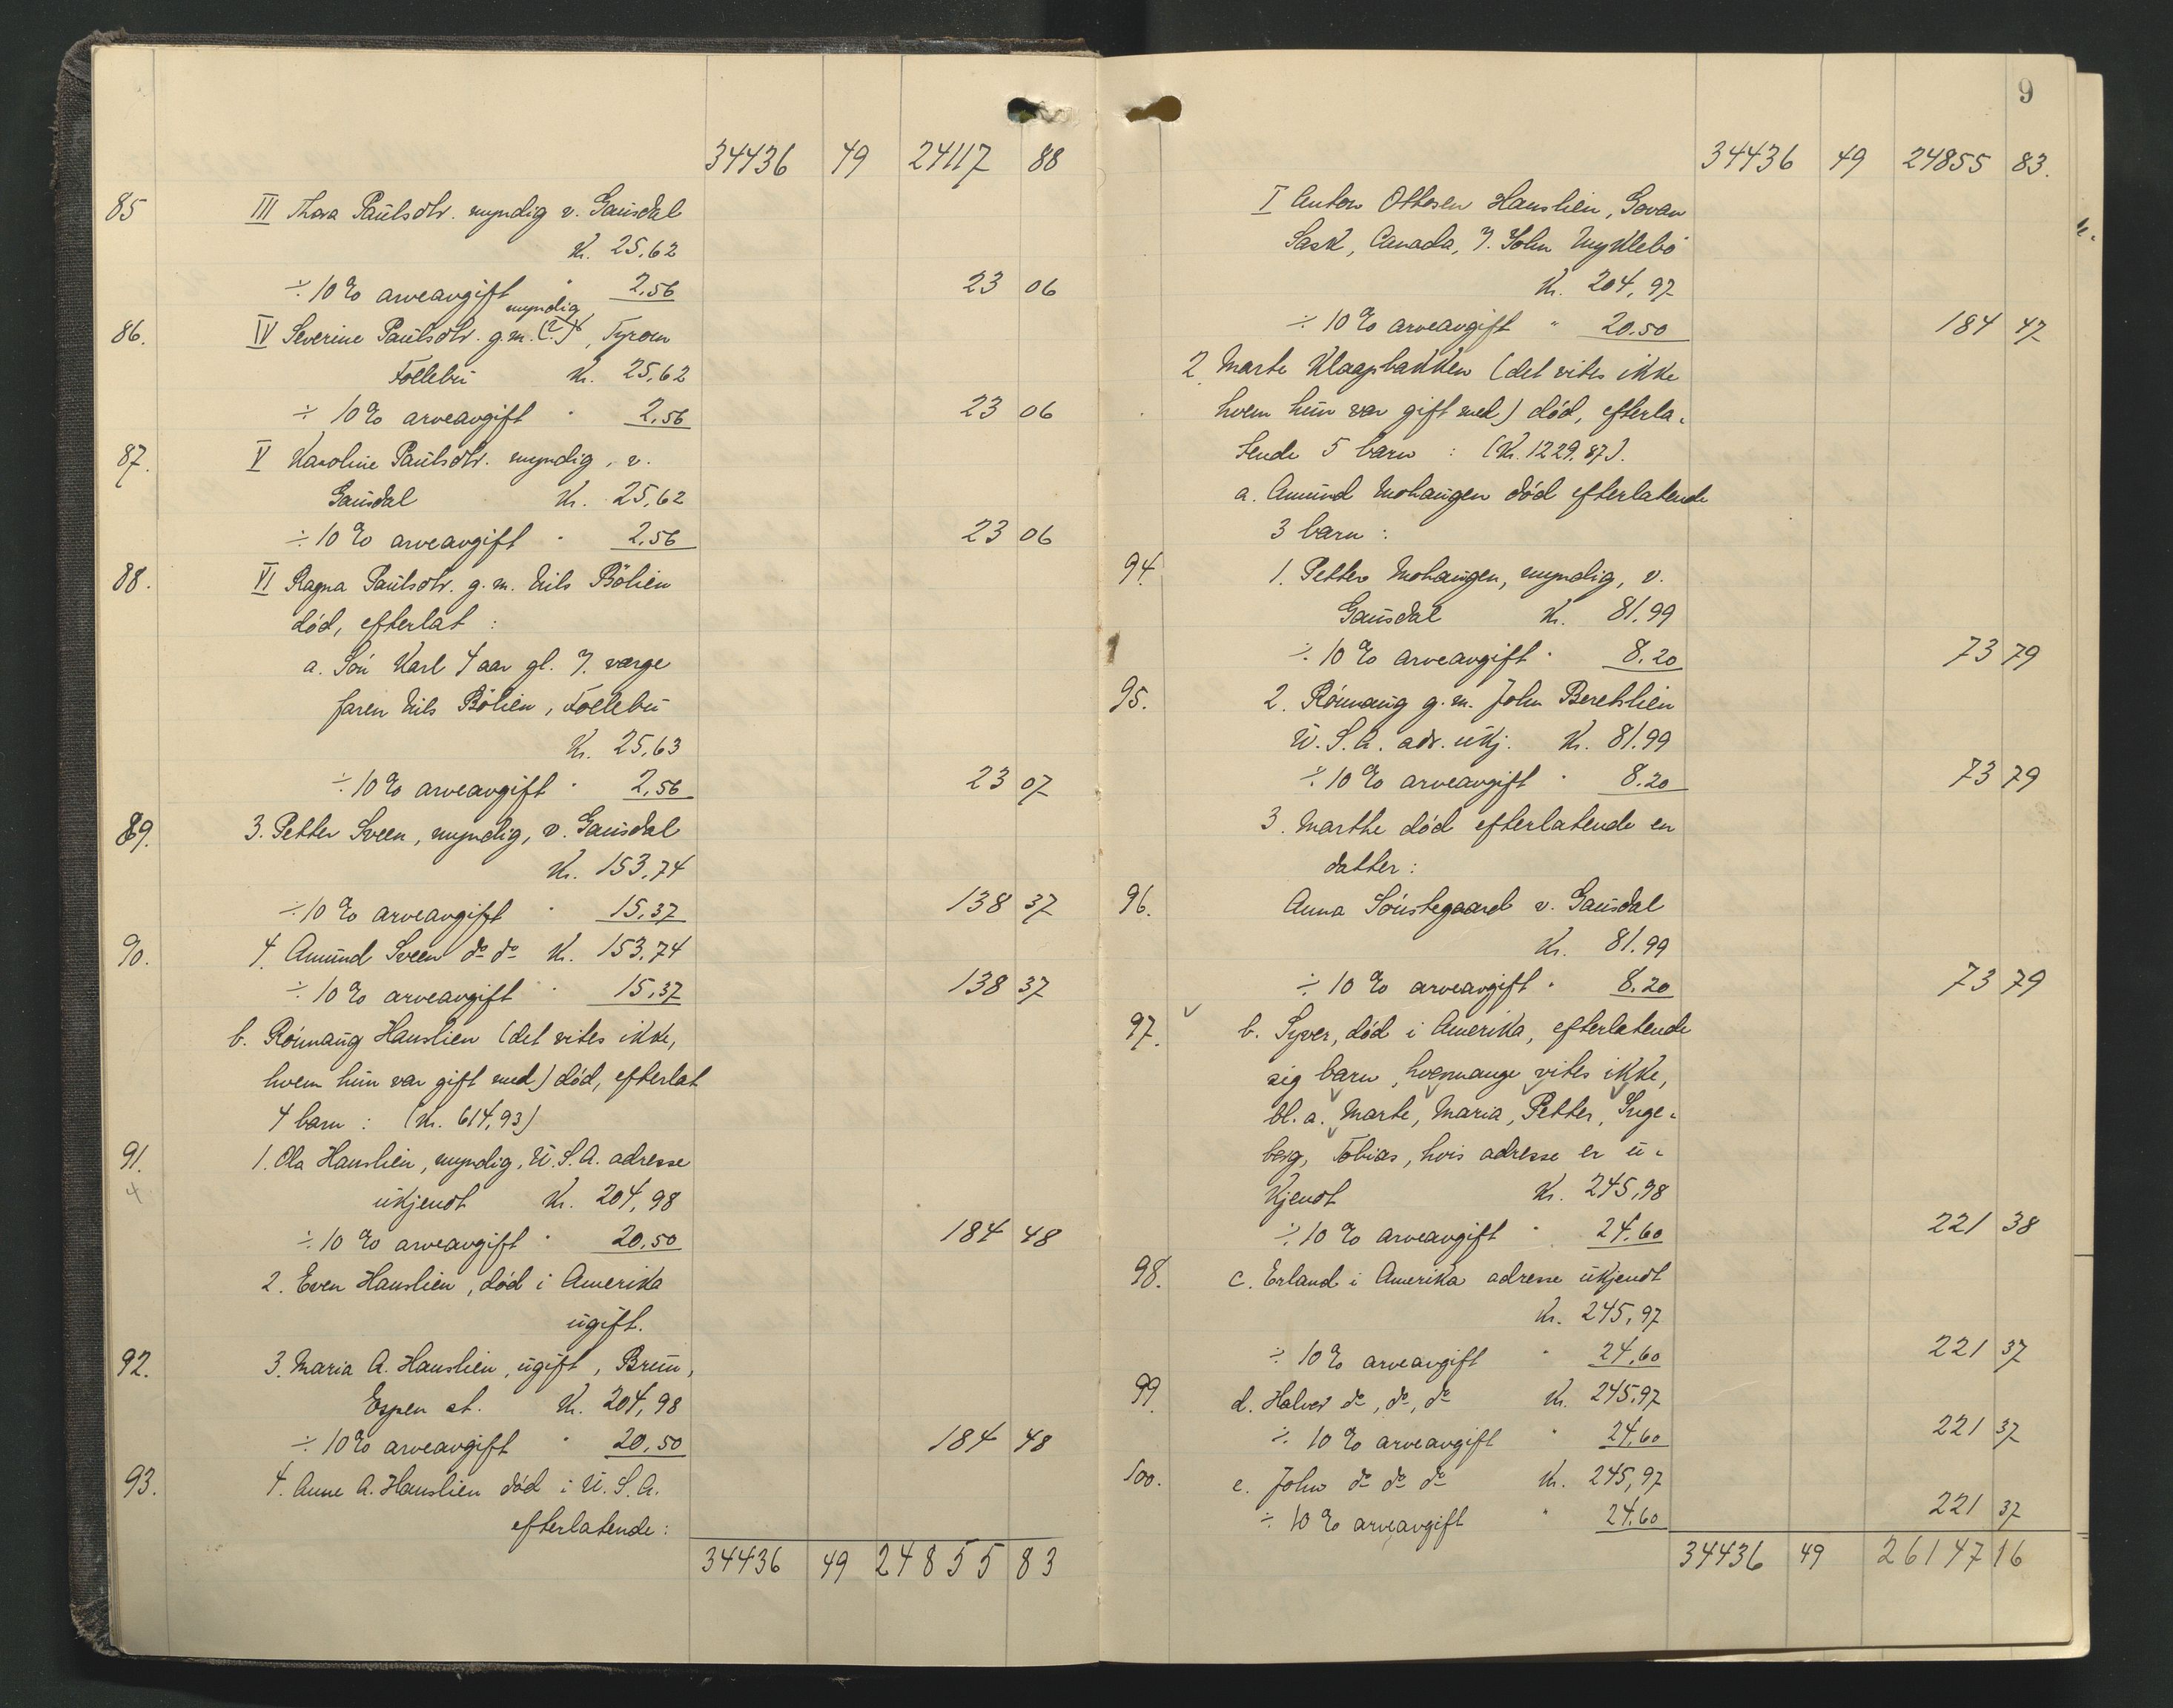 34436 49 24117 88
85 III Thora Paulsdtr. myndig v. Gausdal
Kr. 25,62
÷ 10 % arveavgift " 2,56 23 06
myndig
86. IV Severine Paulsdtr. g.m. (?), Fyrom
Follebu Kr. 25,62
÷ 10 % arveavgift " 2,56 23 06
87. V Karoline Paulsdtr. myndig, v.
Gausdal Kr. 25,62
÷ 10 % arveavgift " 2,56 23 06
88. VI Ragna Paulsdtr. g.m. Nils Bölien
död, efterlat :
a. Sön Karl 4 aar gl. V. værge
faren Nils Bölien, Follebu
Kr. 25,63
÷ 10 % arveavgift " 2,56 23 07
89. 3. Petter Sveen, myndig, v. Gausdal
Kr. 153,74
÷ 10 % arveavgift " 15,37 138 37
90. 4. Amund Sveen do do Kr. 153,74
÷ 10 % arveavgift " 15,37 138 37
b. Rönnaug Hauslien (det vites ikke,
hvem hun var gift med) död, efterlat
4 barn : (Kr. 614,93)
91. 1. Ola Hauslien, myndig, U.S.A. adresse
4 ukjendt Kr. 204,98
÷ 10 % arveavgift " 20,50 184 48
2. Even Hauslien, död i Amerika
ugift.
92. 3. Maria A. Hauslien, ugift, Brun,
Espen st. Kr. 204,98
÷ 10 % arveavgift " 20,50 184 48
93. 4. Anne A. Hauslien död i U.S.A.
efterlatende :
34436 49 24855 83
9
34436 49 24855 83.
I Anton Ottosen Hauslien, Govan
Sask, Canada, V. John Myklebö
Kr. 204,97
÷ 10 % arveavgift " 20.50 184 47
2. Marte Klaapbakken (det vites ikke
hvem hun var gift med) död, efterla-
tende 5 barn : (Kr. 1229.87).
a. Amund Mohaugen död efterlatende
3 barn :
94. 1. Petter Mohaugen, myndig, v.
Gausdal Kr. 81.99
÷ 10 % arveavgift " 8.20 73 79
95. 2. Rönnaug g.m. John Beretslien
U.S.A. adr. ukj. Kr. 81.99
÷ 10 % arveavgift " 8.20 73 79
3. Marthe död efterlatende en
datter :
96. Anna Sönstegaard v. Gausdal
Kr. 81.99
÷ 10 % arveavgift " 8.20 73 79
97. b. Syver, död i Amerika, efterlatende
sig barn, hvormange vites ikke,
bl.a. Marte, Maria, Petter, Inge-
berg, Tobias, hvis adresse er u-
kjendt Kr. 245,98
÷ 10 % arveavgift " 24.60 221 38
98. c. Erland i Amerika adresse ukjendt
Kr. 245,97
÷ 10 % arveavgift " 24.60 221 37
99. d. Halvor do, do, do Kr. 245,97
÷ 10 % arveavgift " 24.60 221 37
100. e. John do do do Kr. 245,97
÷ 10 % arveavgift " 24.60 221 37
34436 49 26147 16